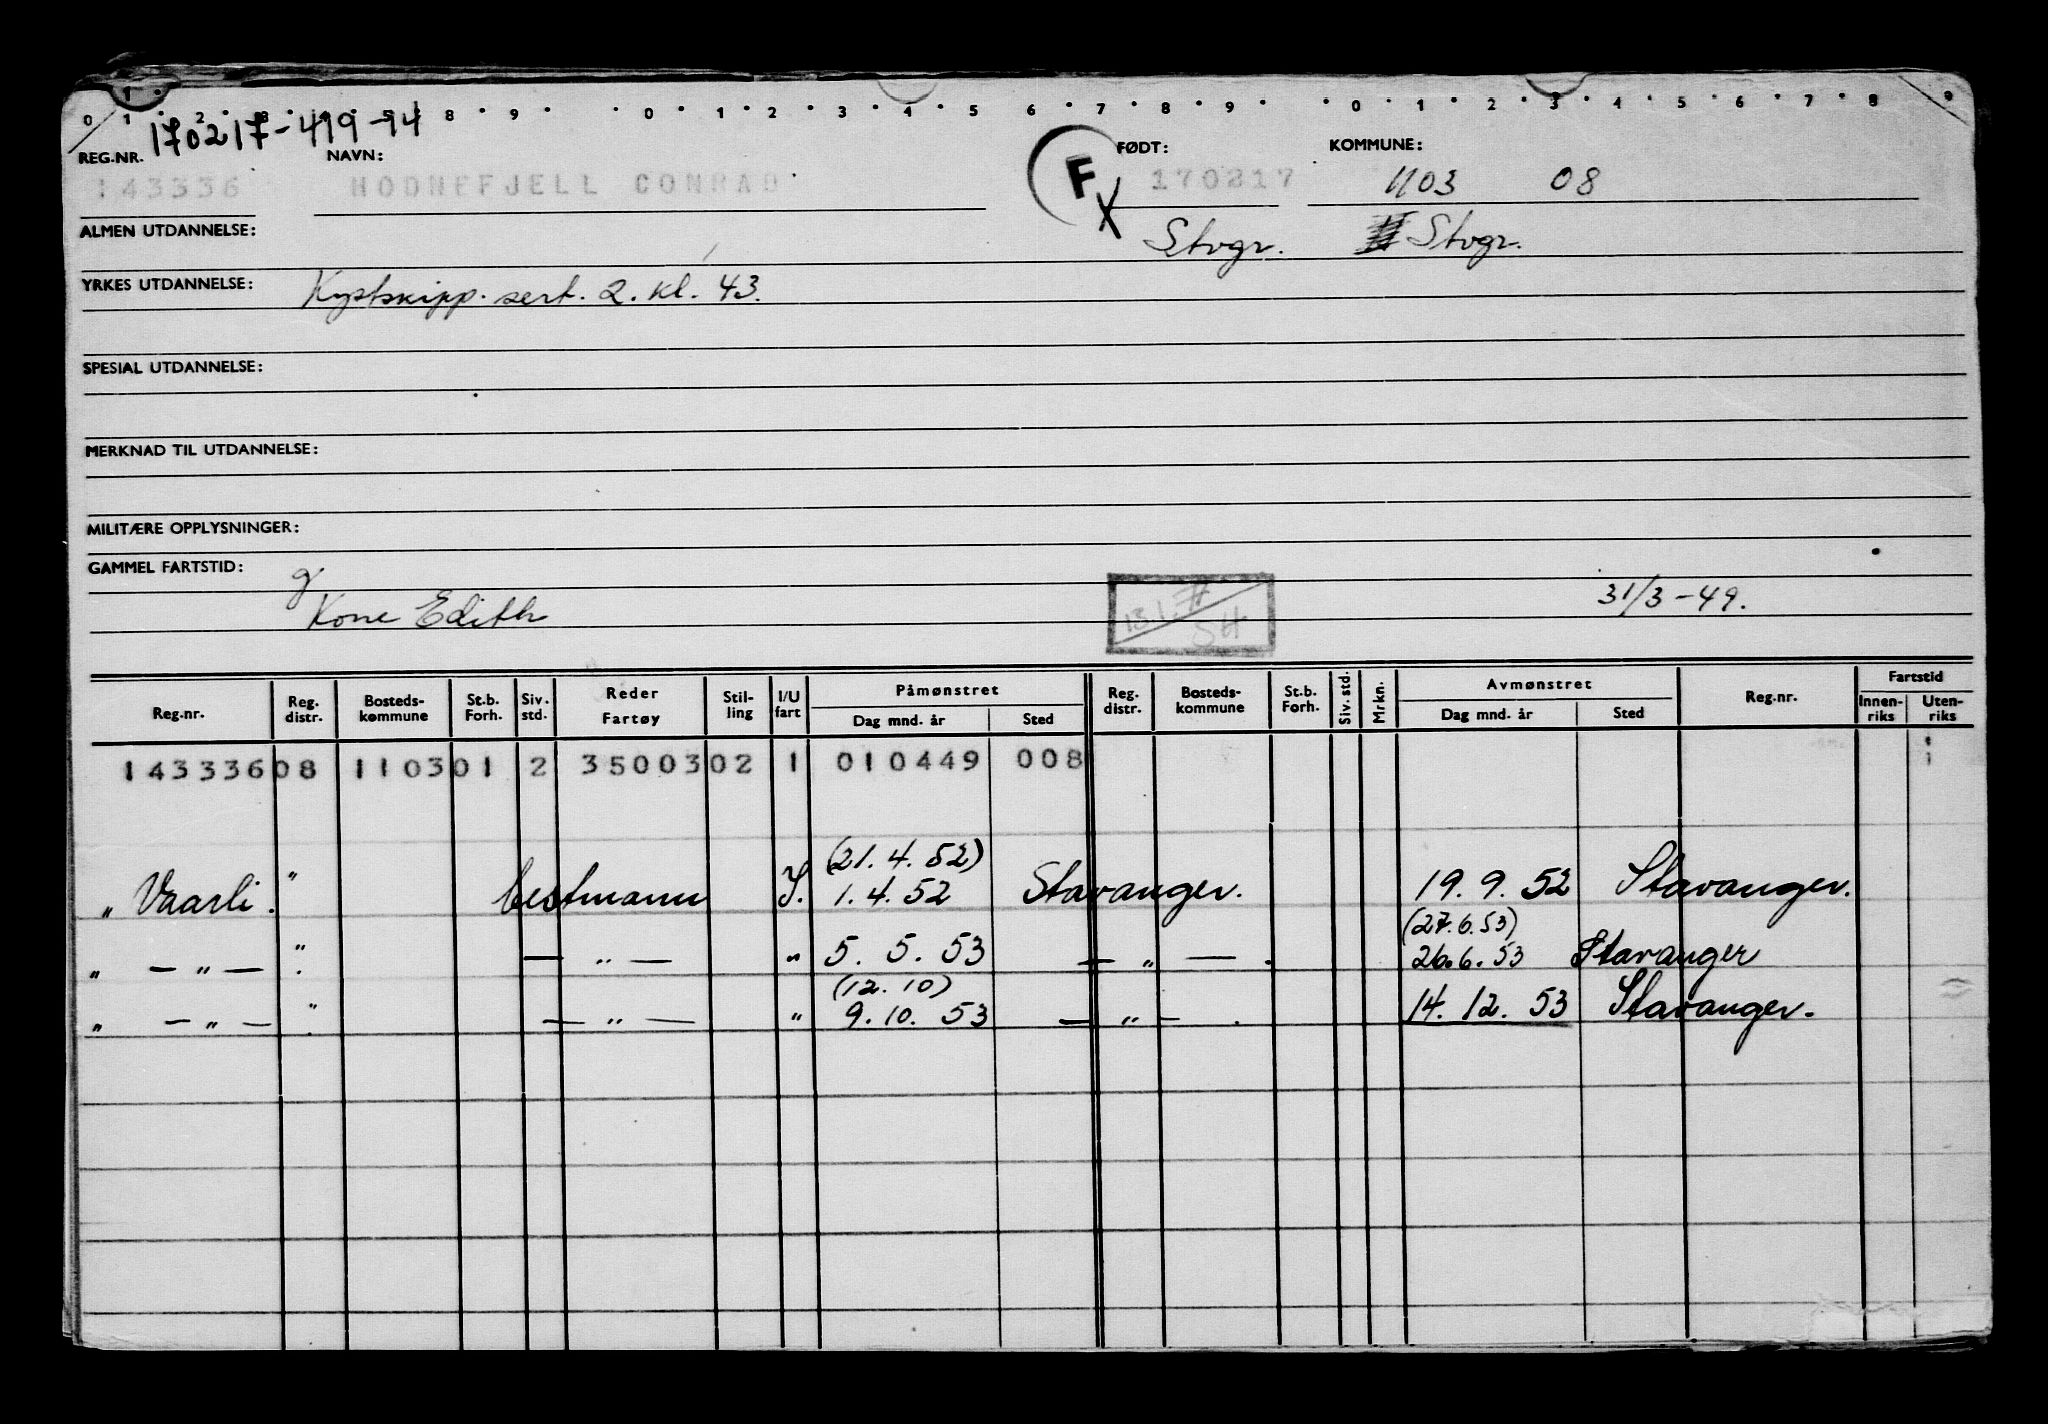 0 1 2 3 8 9 0 1 2 3 4 5 6 7 8 9 0 1 2 3 4 5 6 7 8 9
170217-419-94
REG.NR. NAVN: FØDT: KOMMUNE:
143336 HODNEFJELL CONRAD F X 170217 1103 08
ALMEN UTDANNELSE: Stvgr. Stvgr.
YRKES UTDANNELSE: Kystskipp. sert. 2. kl. 43.
SPESIAL UTDANNELSE:
MERKNAD TIL UTDANNELSE:
MILITÆRE OPPLYSNINGER:
GAMMEL FARTSTID: g
Kone Edith 31/3-49.
Reg.nr. Reg. distr. Bosteds-kommune St.b. Forh. Siv. std. Reder Fartøy Stil-ling I/U fart Påmønstret Dag mnd. år Sted Reg. distr. Bosteds-kommune St.b. Forh. Siv. std. Mrkn. Avmønstret Dag mnd. år Sted Reg.nr. Fartstid Innen-riks Uten-riks
143336 08 1103 01 2 35003 02 1 010449 008
(21.4.52)
" Vaarli. " bestmann I. 1.4.52 Stavanger. 19.9.52 Stavanger.
(27.6.53)
" — " — " — " — " 5.5.53 — " — . 26.6.53 Stavanger
(12.10)
" — " — " — " — " 9.10.53 — " — . 14.12.53 Stavanger.